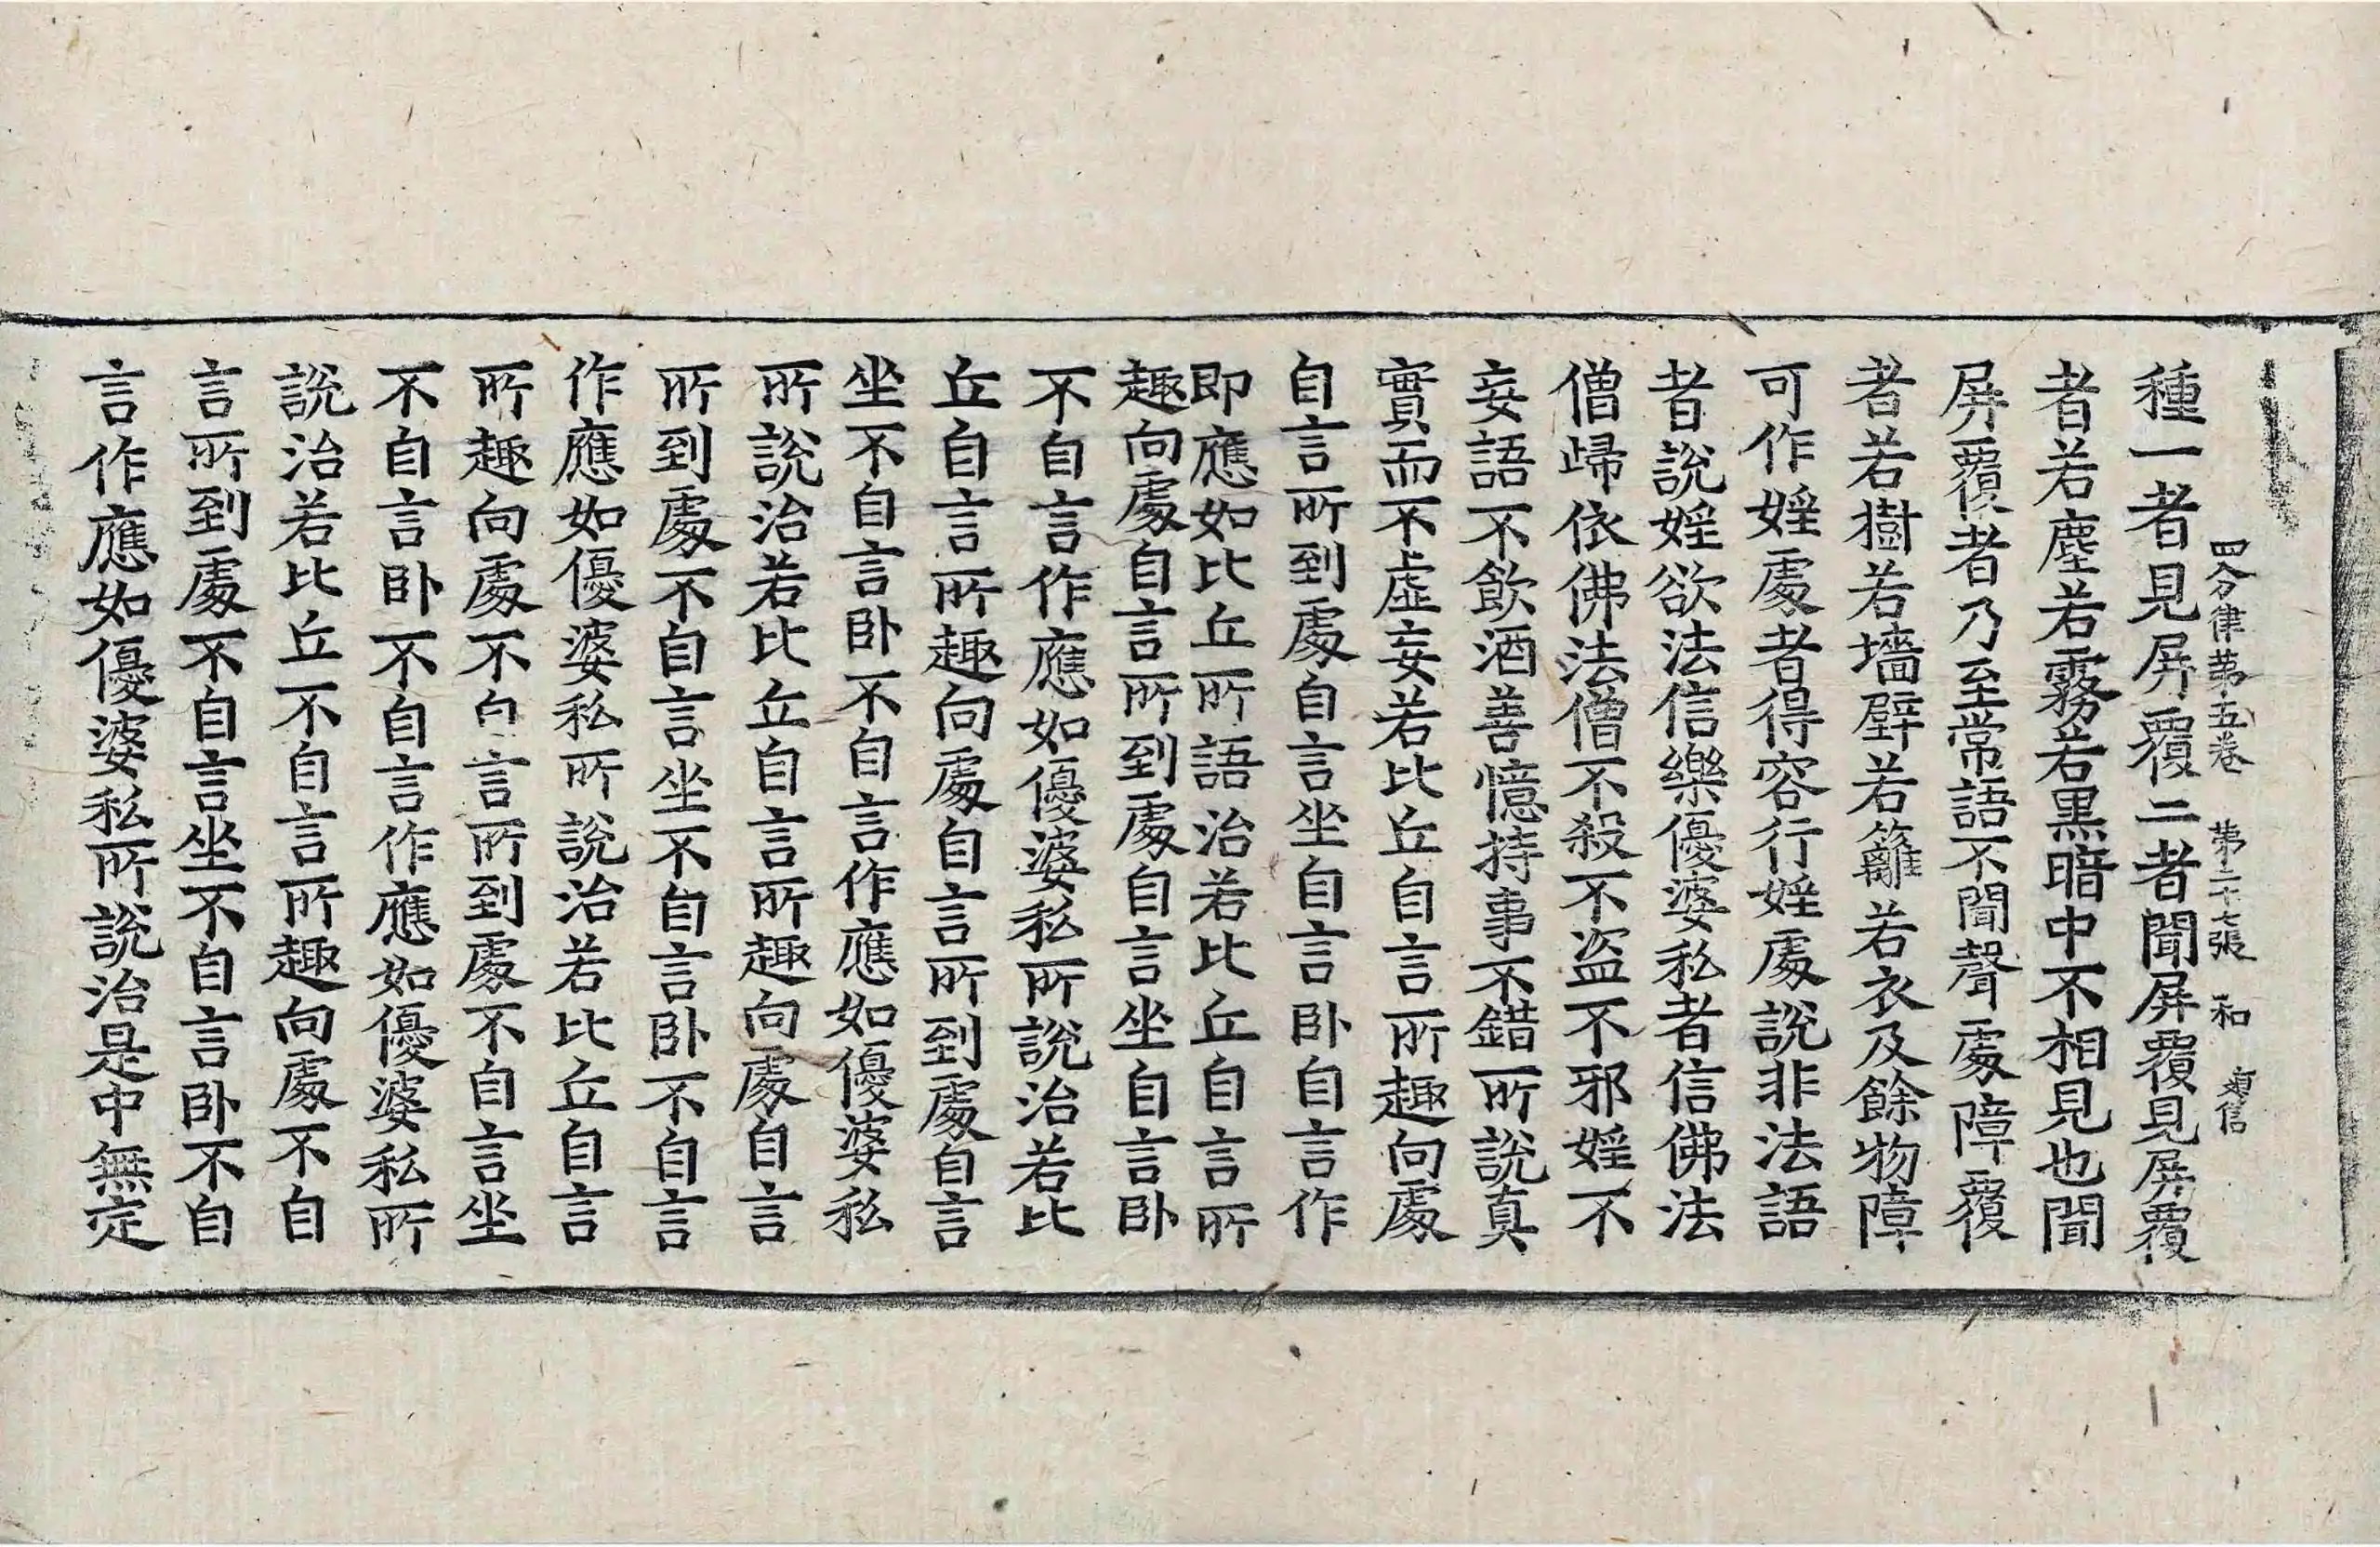 四分律苐五卷 苐二十七張 和 貞信
種一者見屏覆二者聞屏覆見屏覆
者若塵若霧若黒暗中不相見也聞
屏覆者乃至常語不聞聲處障覆
者若樹若墻壁若籬若衣及餘物障
可作婬處者得容行婬處說非法語
者說婬欲法信樂優婆私者信佛法
僧歸依佛法僧不殺不盜不邪婬不
妄語不飲酒善憶持事不錯所說真
實而不虛妄若比丘自言所趣向處
自言所到處自言坐自言卧自言作
即應如比丘所語治若比丘自言所
趣向處自言所到處自言坐自言卧
不自言作應如優婆私所說治若比
丘自言所趣向處自言所到處自言
坐不自言卧不自言作應如優婆私
所說治若比丘自言所趣向處自言
所到處不自言坐不自言卧不自言
作應如優婆私所說治若比丘自言
所趣向處不自言所到處不自言坐
不自言卧不自言作應如優婆私所
說治若比丘不自言所趣向處不自
言所到處不自言坐不自言卧不自
言作應如優婆私所說治是中無定